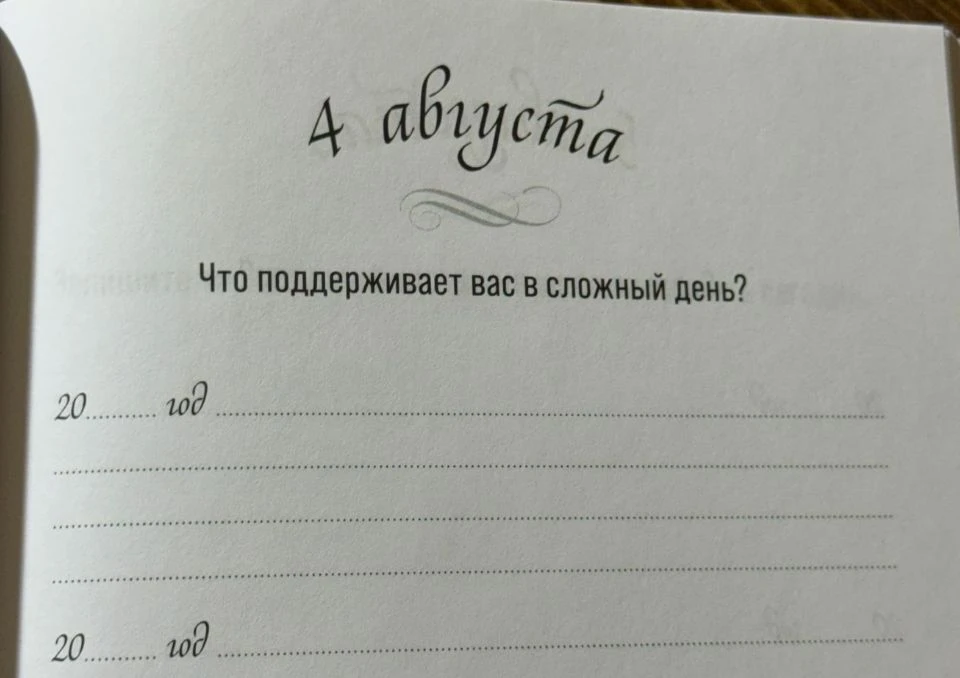 4 августа
Что поддерживает вас в сложный день?
20.......... год
20.......... год